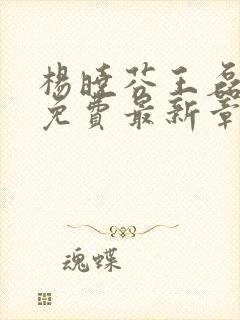 楊曉芬王磊
免費最新章
魂蝶